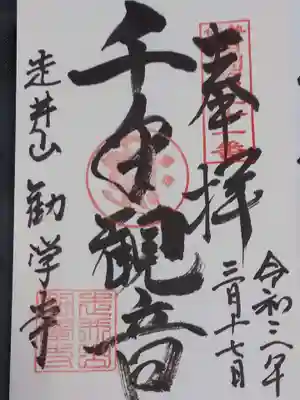 奉拝
令和二年
三月十七日
千手観音
走井山 勧学寺